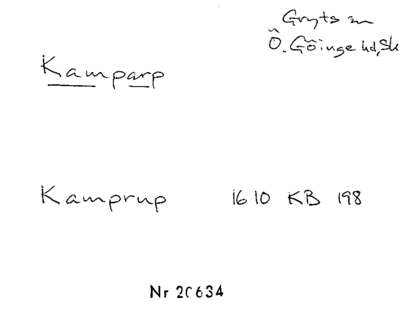 Gryts sn
Ö. Göinge hd, Sk
Kamparp
Kamprup 1610 KB 198
Nr 20634